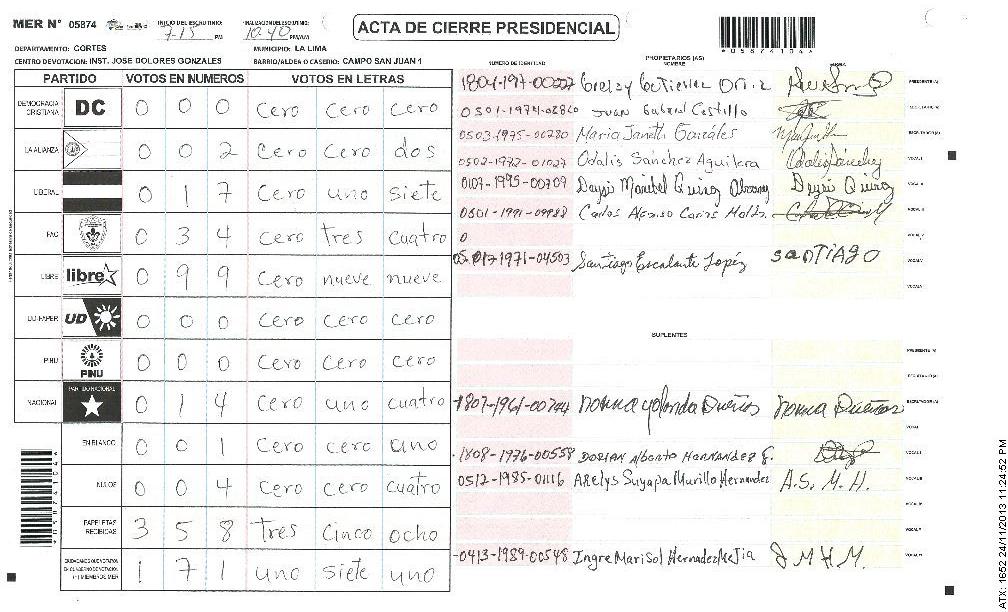 MER N° 05874
INICIO DEL ESCRUTINIO:
7-15 PM
FINALIZACION DEL ESCRUTINIO:
10-40 PM/AM
ACTA DE CIERRE PRESIDENCIAL
05874104
DEPARTAMENTO: CORTES
MUNICIPIO: LA LIMA
CENTRO DE VOTACION: INST. JOSE DOLORES GONZALES
BARRIO/ALDEA O CASERIO: CAMPO SAN JUAN 1
PARTIDO VOTOS EN NUMEROS VOTOS EN LETRAS
DEMOCRACIA CRISTIANA DC 0 0 0 Cero Cero Cero
LA ALIANZA 0 0 2 Cero Cero dos
LIBERAL 0 1 7 Cero uno siete
PAC 0 3 4 Cero tres cuatro
LIBRE libre 0 9 9 Cero nueve nueve
UD-FAPER UD 0 0 0 Cero Cero Cero
PINU PINU 0 0 0 Cero Cero Cero
NACIONAL PARTIDO NACIONAL 0 1 4 Cero uno cuatro
EN BLANCO 0 0 1 Cero Cero uno
NULOS 0 0 4 Cero Cero cuatro
PAPELETAS RECIBIDAS 3 5 8 tres Cinco ocho
1 7 1 uno siete uno
NUMERO DE IDENTIDAD
PROPIETARIOS (AS)
NOMBRE
FIRMA
Gutierrez PRESIDENTE (A)
0501-1974-02860 Juan Gabriel Castillo SECRETARIO (A)
0503-1975-00280 Maria Janeth Gonzáles ESCRUTADOR (A)
0502-1972-01027 Odalis Sánchez Aguilera Odalis Sánchez VOCAL I
0107-1995-00709 Deysi Maribel Quiroz Deysi Quiroz VOCAL II
0501-1991-09988 Carlos VOCAL III
0 VOCAL IV
0501-1971-04503 Santiago Escalante López SANTIAGO VOCAL V
VOCAL VI
SUPLENTES
PRESIDENTE (A)
SECRETARIO (A)
1807-1961-00744 Norma Yolanda Dueñas Norma Dueñas ESCRUTADOR (A)
1808-1976-00558 DORIAN Alberto HERNANDEZ G. VOCAL I
0512-1985-01116 Arelys Suyapa Murillo Hernandez A.S. M. H. VOCAL II
VOCAL III
VOCAL V
-0413-1989-00548 Ingre Marisol Hernadez Mejia J M H M. VOCAL VI
ATX: 1652 24/11/2013 11:24:52 PM